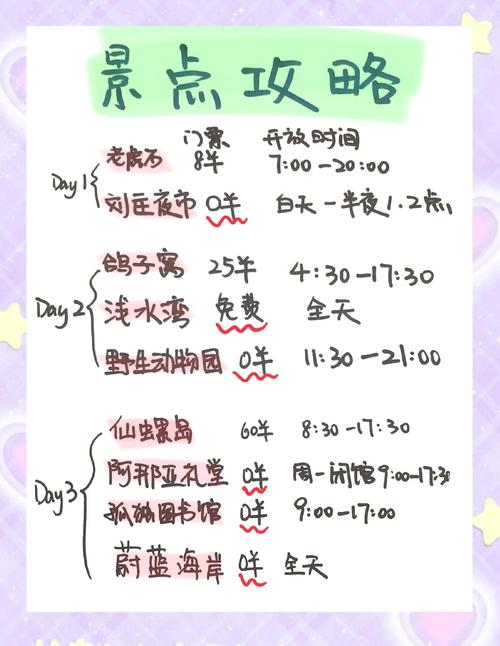 景点攻略
门票 开放时间
Day1
老虎石 8半 7:00-20:00
刘庄夜市 0半 白天一半夜1.2点
Day2
鸽子窝 25半 4:30-17:30
浅水湾 免费 全天
野生动物园 0半 11:30-21:00
Day3
仙螺岛 60半 8:30-17:30
阿那亚礼堂 0半 周一闭馆9:00-17:30
孤独图书馆 0半 9:00-17:00
蔚蓝海岸 0半 全天